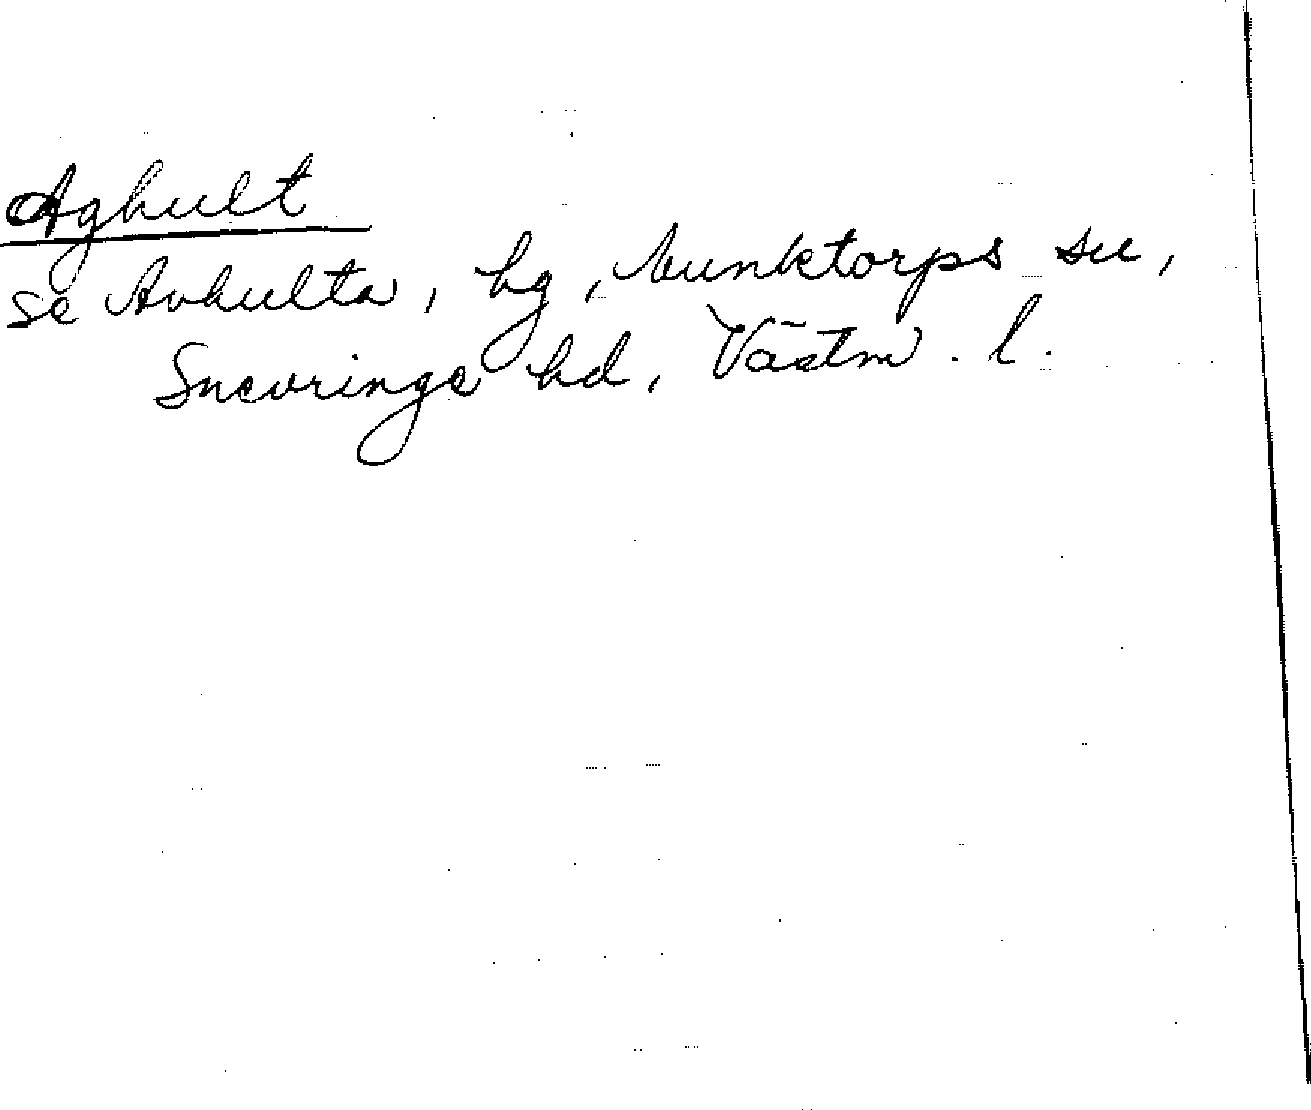 Aghult
se Avhulta, hg, Munktorps sn,
Snevringe hd, Västm. l.